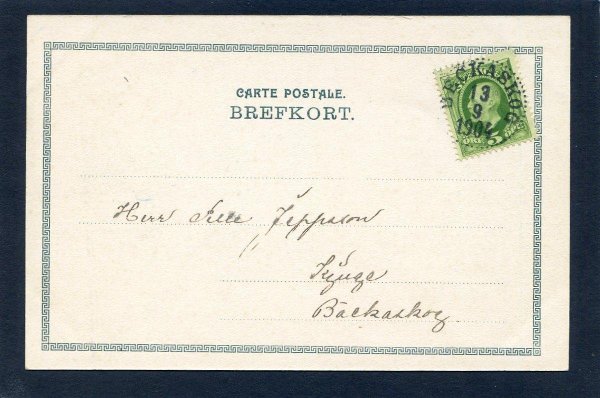 CARTE POSTALE.
BREFKORT.
BECKASKOG
13
9
1904
5 ÖRE
Herr Pelle Jeppsson
Kjuge
Bäckaskog